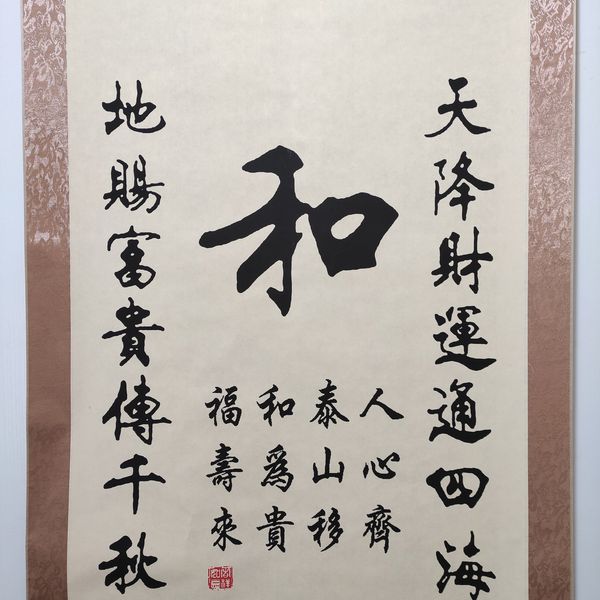 天降財運通四海
和
人心齊
泰山移
和爲貴
福壽來
地賜富貴傳千秋